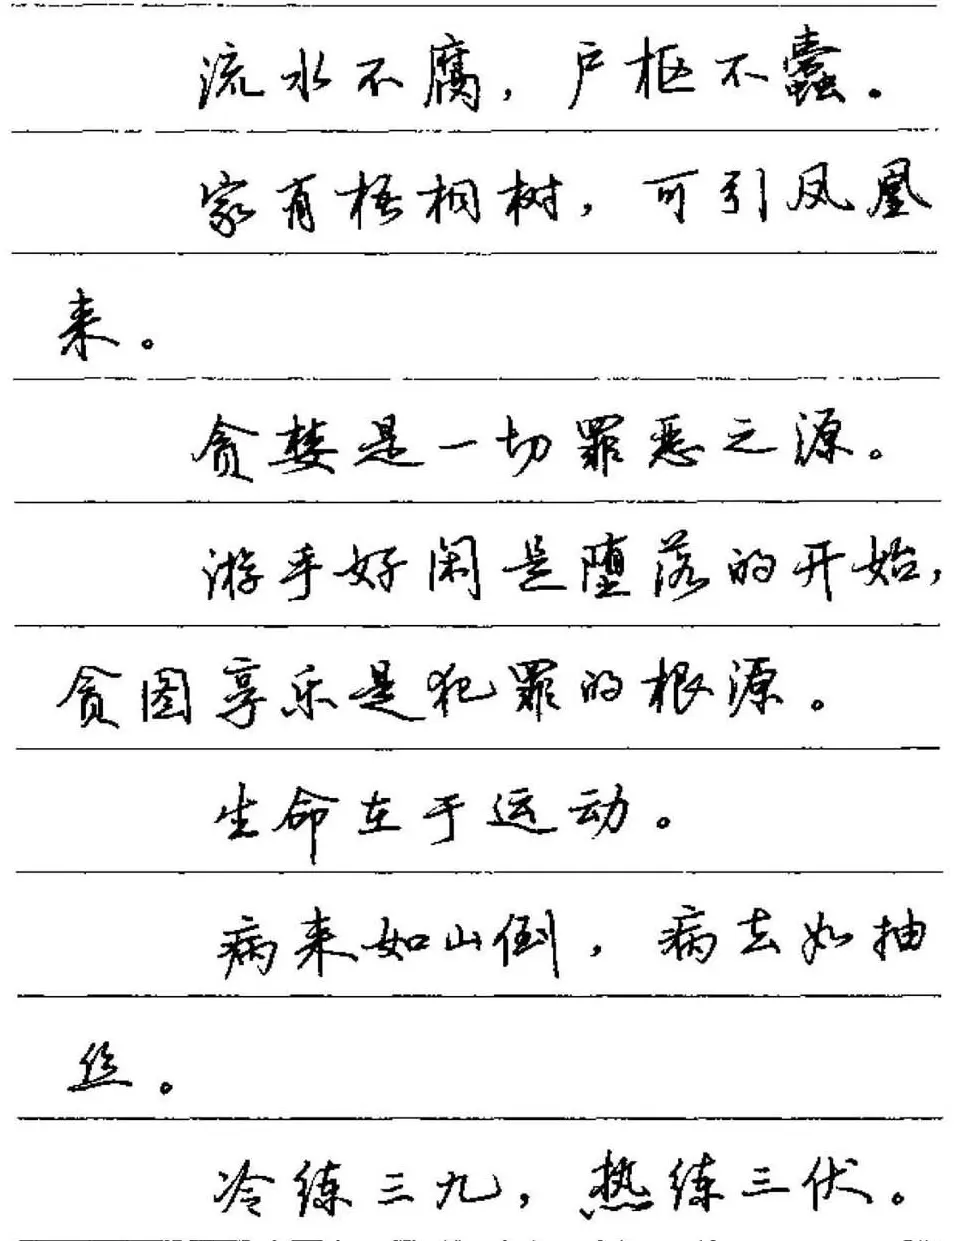 流水不腐，户枢不蠹。
家有梧桐树，可引凤凰
来。
贪婪是一切罪恶之源。
游手好闲是堕落的开始，
贪图享乐是犯罪的根源。
生命在于运动。
病来如山倒，病去如抽
丝。
冷练三九，热练三伏。